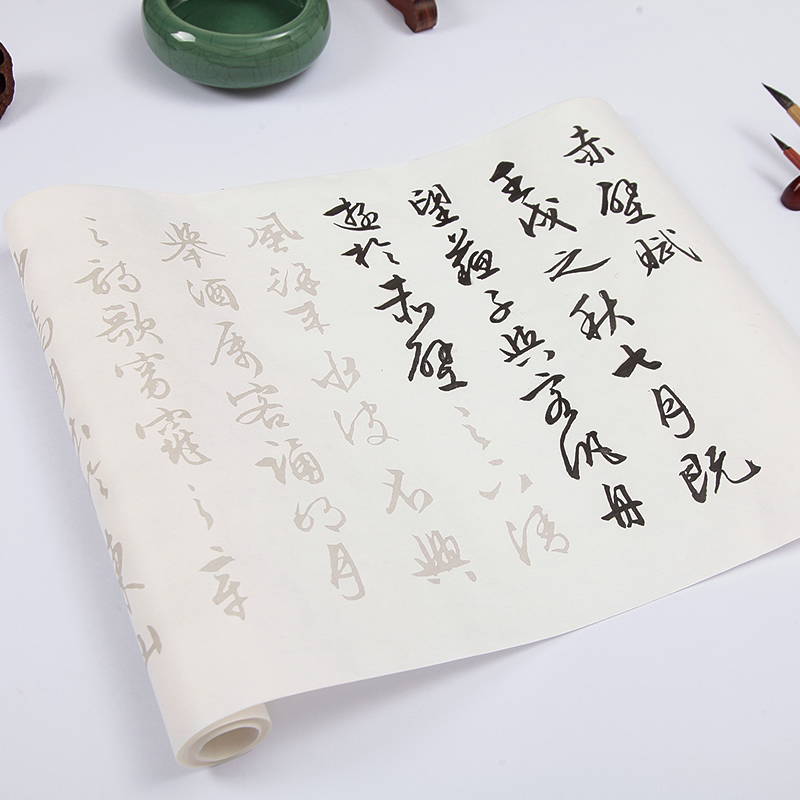 赤壁賦
壬戌之秋七月既
望蘇子與客汎舟
遊於赤壁之下清
風徐来水波不興
舉酒属客誦明月
之詩歌窈窕之章
少焉月出於東山